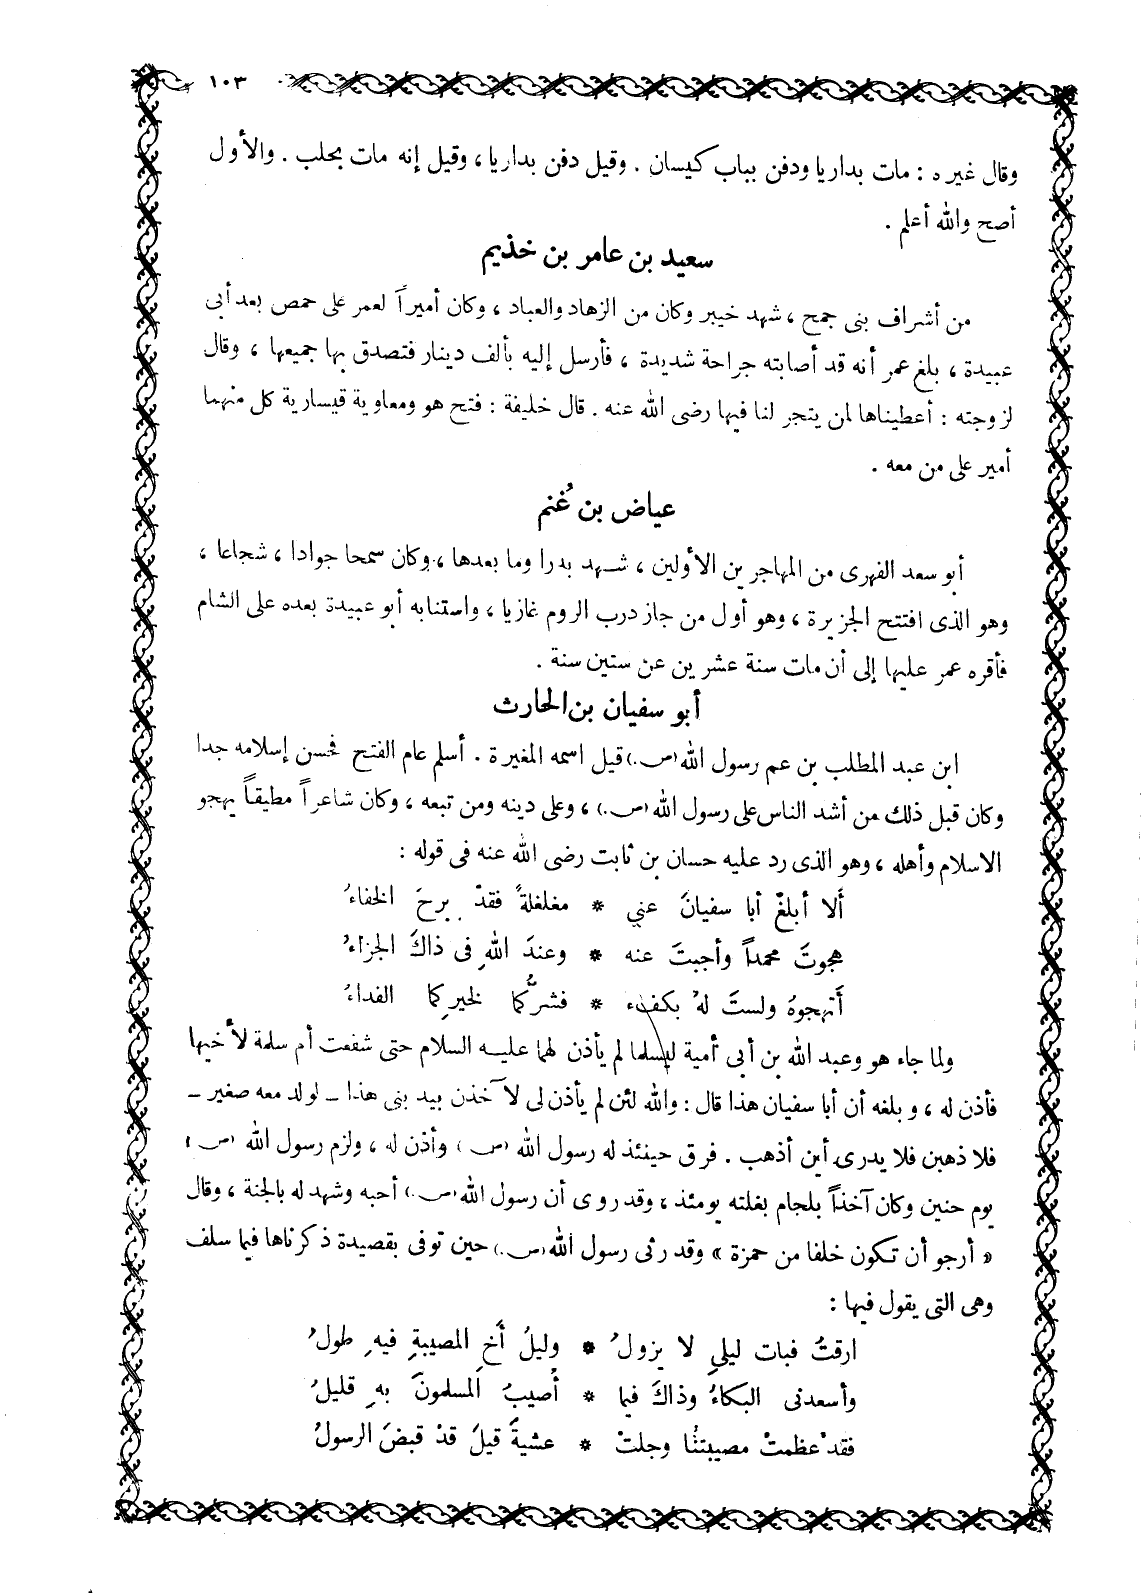 ١٠٣
وقال غيره : مات بداريا ودفن بباب كيسان . وقيل دفن بداريا ، وقيل إنه مات بحلب . والأول
أصح والله أعلم .
سعيد بن عامر بن خذيم
من أشراف بنى جمح ، شهد خيبر وكان من الزهاد والعباد ، وكان أميراً لعمر على حمص بعد أبى
عبيدة ، بلغ عمر أنه قد أصابته جراحة شديدة ، فأرسل إليه بألف دينار فتصدق بها جميعها ، وقال
لزوجته : أعطيناها لمن يتجر لنا فيها رضى الله عنه . قال خليفة : فتح هو ومعاوية قيسارية كل منهما
أمير على من معه .
عياض بن غُنم
أبو سعد الفهرى من المهاجرين الأولين ، شهد بدرا وما بعدها ، وكان سمحا جوادا ، شجاعا ،
وهو الذى افتتح الجزيرة ، وهو أول من جاز درب الروم غازيا ، واستنابه أبو عبيدة بعده على الشام
فأقره عمر عليها إلى أن مات سنة عشرين عن ستين سنة .
أبو سفيان بن الحارث
ابن عبد المطلب بن عم رسول الله (ص.) قيل اسمه المغيرة . أسلم عام الفتح فحسن إسلامه جدا
وكان قبل ذلك من أشد الناس على رسول الله (ص.) ، وعلى دينه ومن تبعه ، وكان شاعراً مطيقاً يهجو
الاسلام وأهله ، وهو الذى رد عليه حسان بن ثابت رضى الله عنه فى قوله :
أَلا أبلغْ أبا سفيانَ عني * مغلغلةً فقدْ برحَ الخفاءُ
هجوتَ محمداً وأجبتَ عنه * وعندَ اللهِ فى ذاكَ الجزاءُ
أَتهجوهُ ولستَ لهُ بكفء * فشرُّكما لخيرِكما الفداءُ
ولما جاء هو وعبد الله بن أبى أمية ليسلما لم يأذن لهما عليه السلام حتى شفعت أم سلمة لأخيها
فأذن له ، وبلغه أن أبا سفيان هذا قال : والله لئن لم يأذن لى لآخذن بيد بنى هذا ـ لولد معه صغير ـ
فلا ذهبن فلا يدرى أين أذهب . فرق حينئذ له رسول الله (ص) وأذن له ، ولزم رسول الله (ص)
يوم حنين وكان آخذاً بلجام بغلته يومئذ ، وقد روى أن رسول الله (ص.) أحبه وشهد له بالجنة ، وقال
« أرجو أن تكون خلفا من حمزة » وقد رثى رسول الله (ص.) حين توفى بقصيدة ذكرناها فيما سلف
وهى التى يقول فيها :
ارقتُ فبات ليلي لا يزولُ * وليلُ أَخِ المصيبةِ فيهِ طولُ
وأسعدنى البكاءُ وذاكَ فيما * أُصيبُ المسلمونَ بهِ قليلُ
فقدْ عظمتْ مصيبتنُا وجلتْ * عشيةَ قيلَ قدْ قبضَ الرسولُ